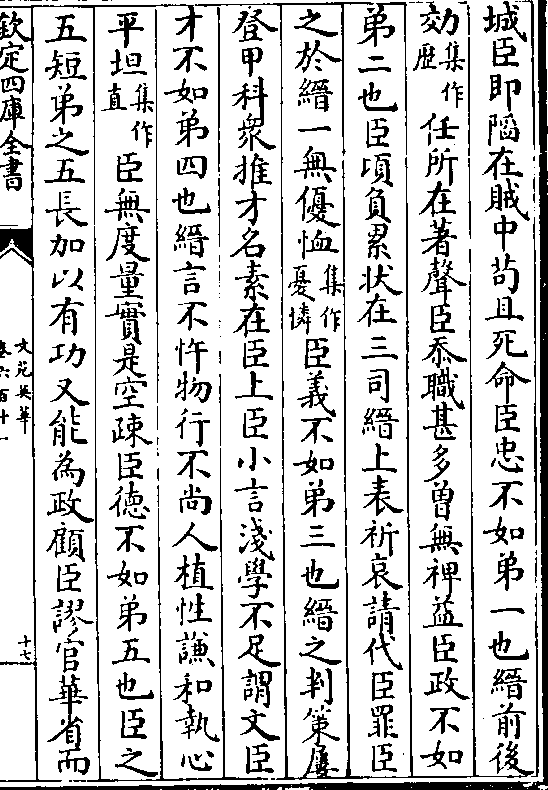 城臣即陷在賊中苟且死命臣忠不如第一也縉前後
効集作歴任所在著聲臣忝職甚多曽無禆益臣政不如
第二也臣頃負累状在三司縉上表祈哀請代臣罪臣
之於縉一無優恤集作憂憐臣義不如第三也縉之判策屢
登甲科衆推才名素在臣上臣小言淺學不足謂文臣
才不如第四也縉言不忤物行不尚人植性謙和執心
平坦集作直臣無度量實是空疎臣徳不如第五也臣之
五短弟之五長加以有功又能為政顧臣謬官華省而
欽定四庫全書
文苑英華
卷六百十一
十七